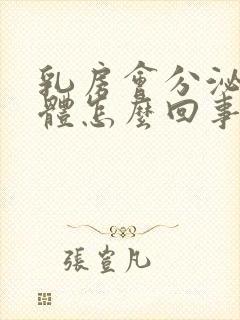 乳房會分泌
體怎麼回事
張萱凡